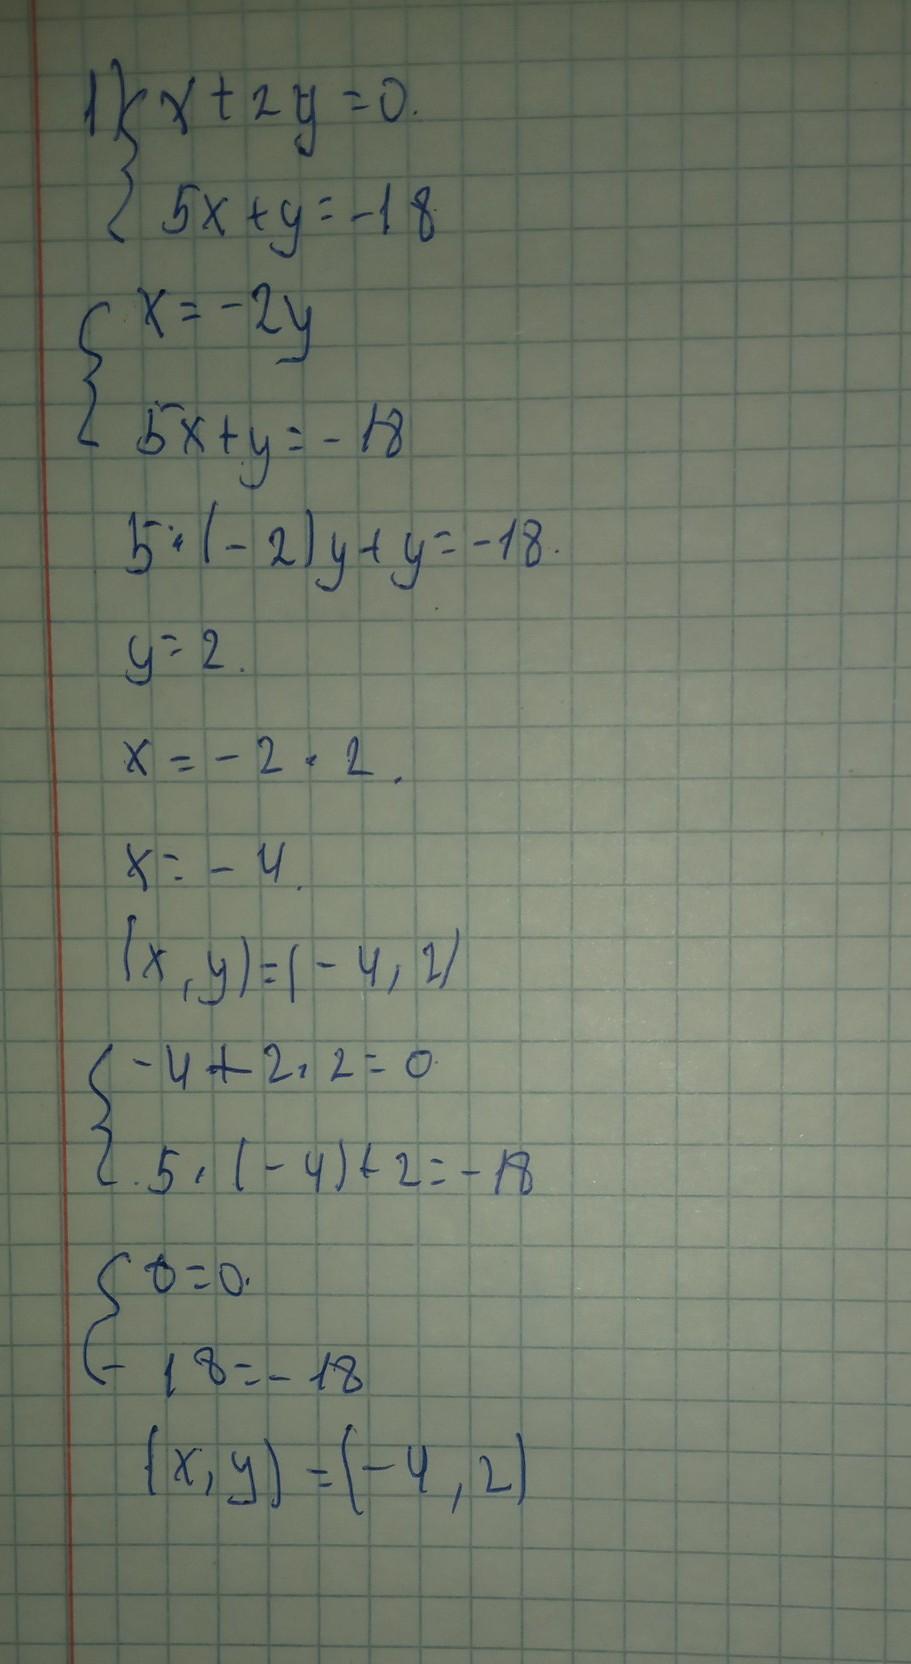 1) { x + 2y = 0.
5x + y = -18
{ x = -2y
5x + y = -18
5 · (-2)y + y = -18.
y = 2.
x = -2 · 2.
x = -4.
(x, y) = (-4, 2)
{ -4 + 2 · 2 = 0
5 · (-4) + 2 = -18
{ 0 = 0.
-18 = -18
(x, y) = (-4, 2)